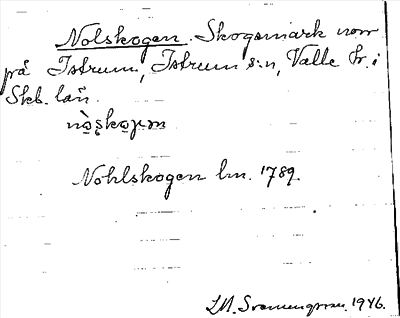 Nolskogen. Skogsmark norr
på Istrum, Istrum s:n, Valle hr. i
Skb. län.
Nohlskogen lm. 1789.
1946.